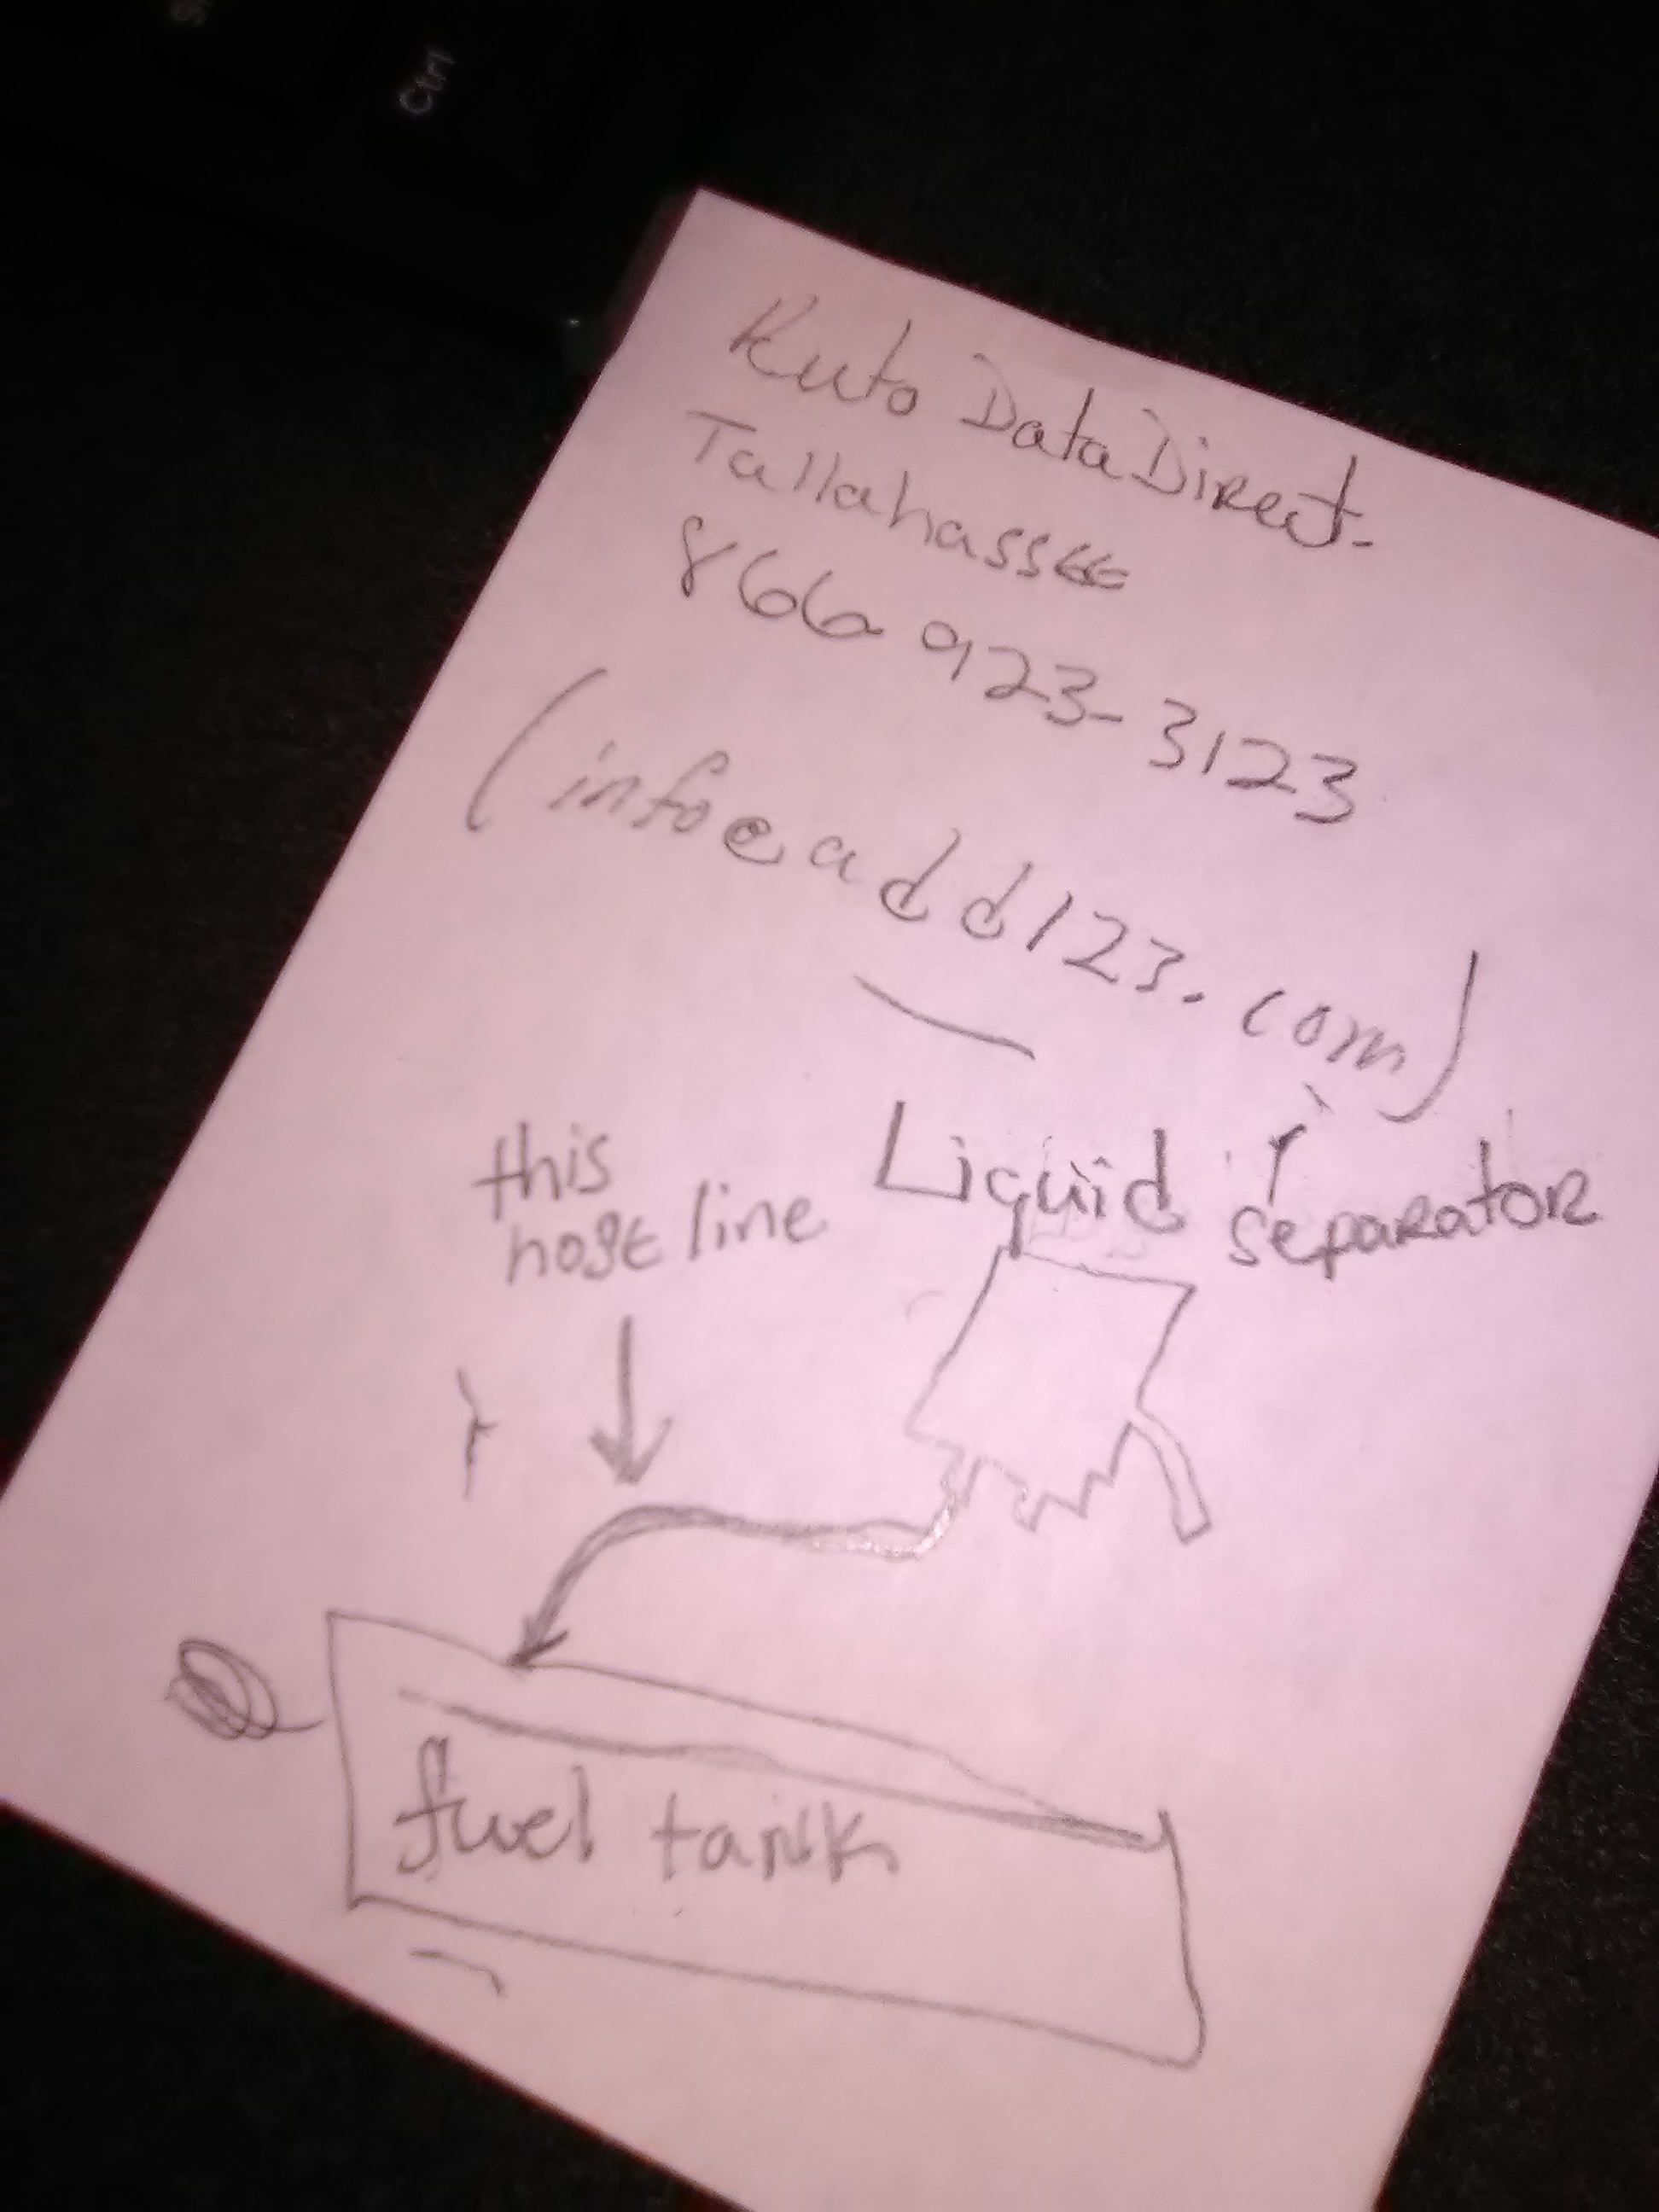 Ctrl
Auto DataDirect.
Tallahassee
866 923-3123
(info@add123.com)
this
hose line
Liquid separator
fuel tank